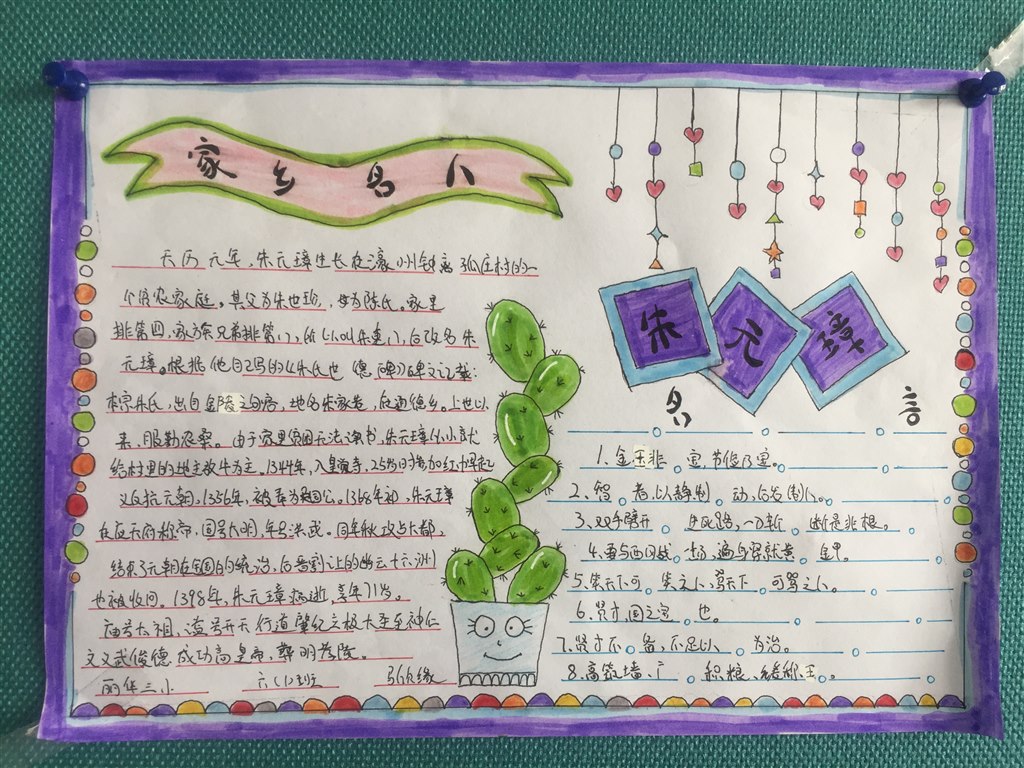 家乡名人
天历元年，朱元璋生长在濠州钟离孤庄村的一
个贫农家庭。其父为朱世珍，母为陈氏。家里
排第四，家族兄弟排第八，所以叫朱重八，后改名朱
元璋。根据他自己写的《朱氏
朱氏，出自金陵之句容，地名朱家巷，在通德乡。上世以
来，服勤农桑。由于家里贫困无法读书，朱元璋从小就
给村里的地主放牛为主。1344年，入皇觉寺，25岁时参加红巾军起
义反抗元朝，1356年，被奉为吴国公，1368年初，朱元璋
在应天府称帝，国号大明，年号洪武。同年秋攻占大都，
结束了元朝在全国的统治，后晋割让的幽云十六州
也被收回。1398年，朱元璋病逝，享年71岁。
庙号太祖，谥号开天行道肇纪立极大圣至神仁
文义武俊德成功高皇帝，葬明孝陵。
丽华三小 六(1)班
朱元璋
名言
1、金玉非宝，节俭乃宝。
2、智者以静制动，后发制人。
3、双手劈开生死路，一刀斩断是非根。
5、
6、贤才，国之宝也。
7、贤才不备，不足以为治。
8、高筑墙、广积粮、缓称王。